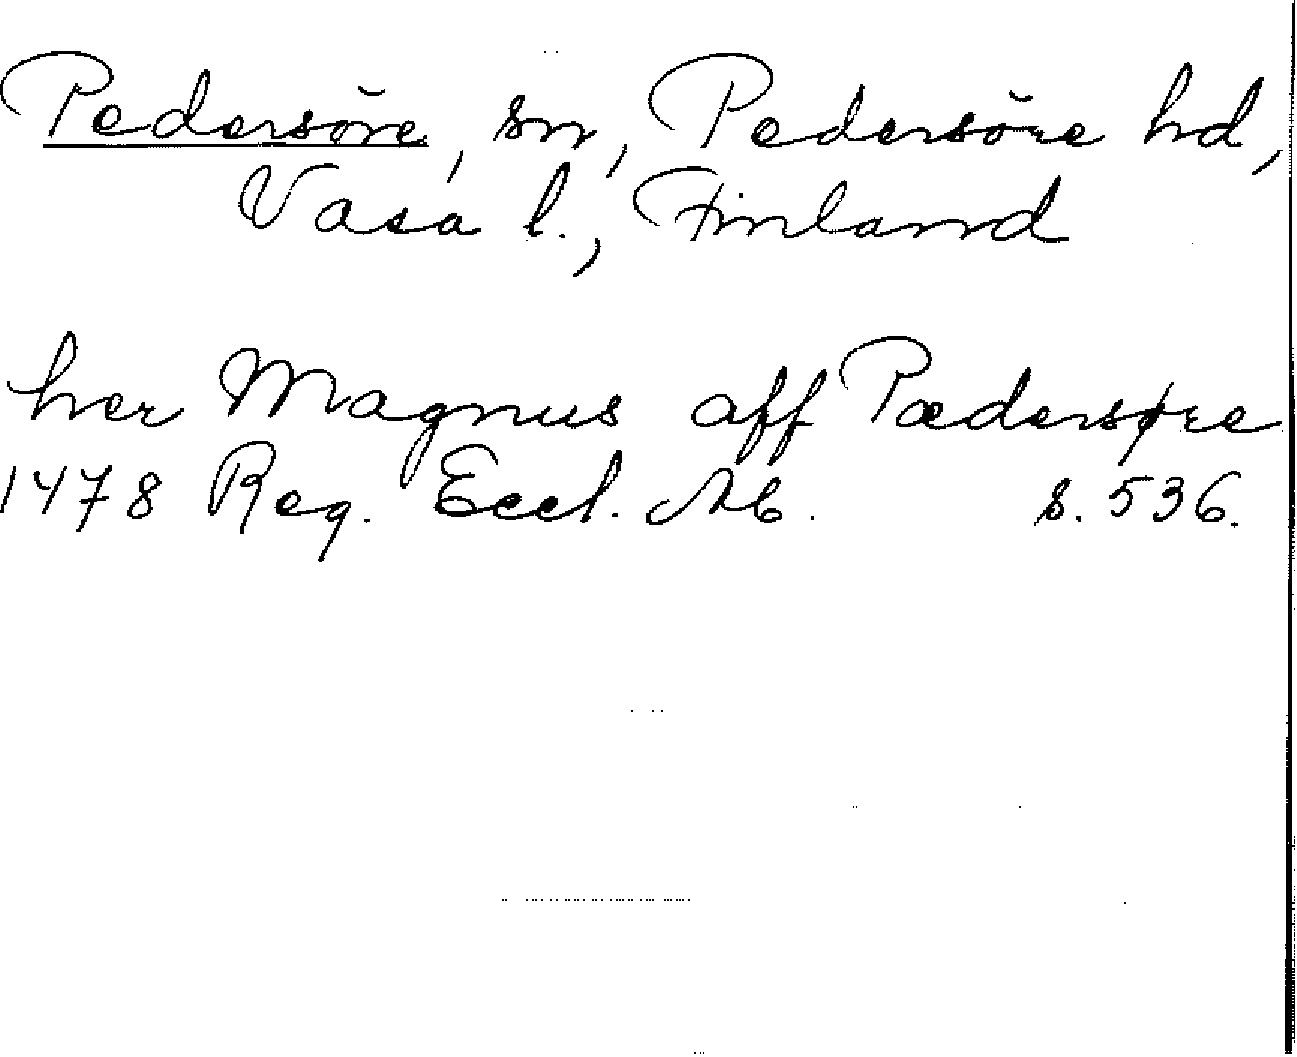 Pedersöre, sn, Pedersöre hd,
Vasa l., Finland
her Magnus aff Pædersøre
1478 Reg. Eccl. Ab. s. 536.